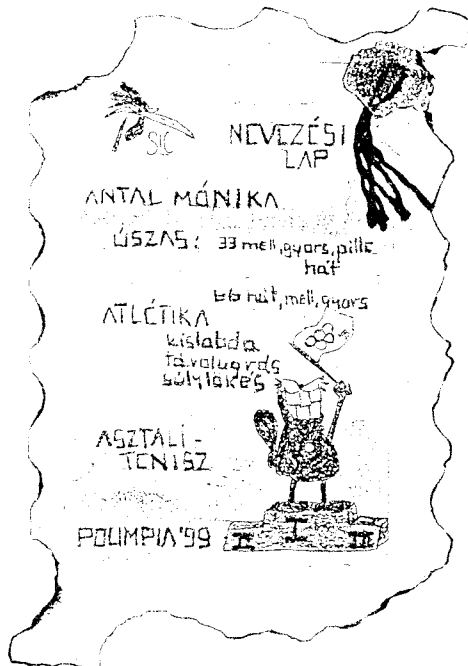 SIC
NEVEZÉSI
LAP
ANTAL MÓNIKA
ÚSZÁS: 33 mell, gyors, pille
hát
66 hát, mell, gyors
ATLÉTIKA
kislabda
távolugrás
súlylökés
ASZTALI-
TENISZ
POLIMPIA '99
II I III